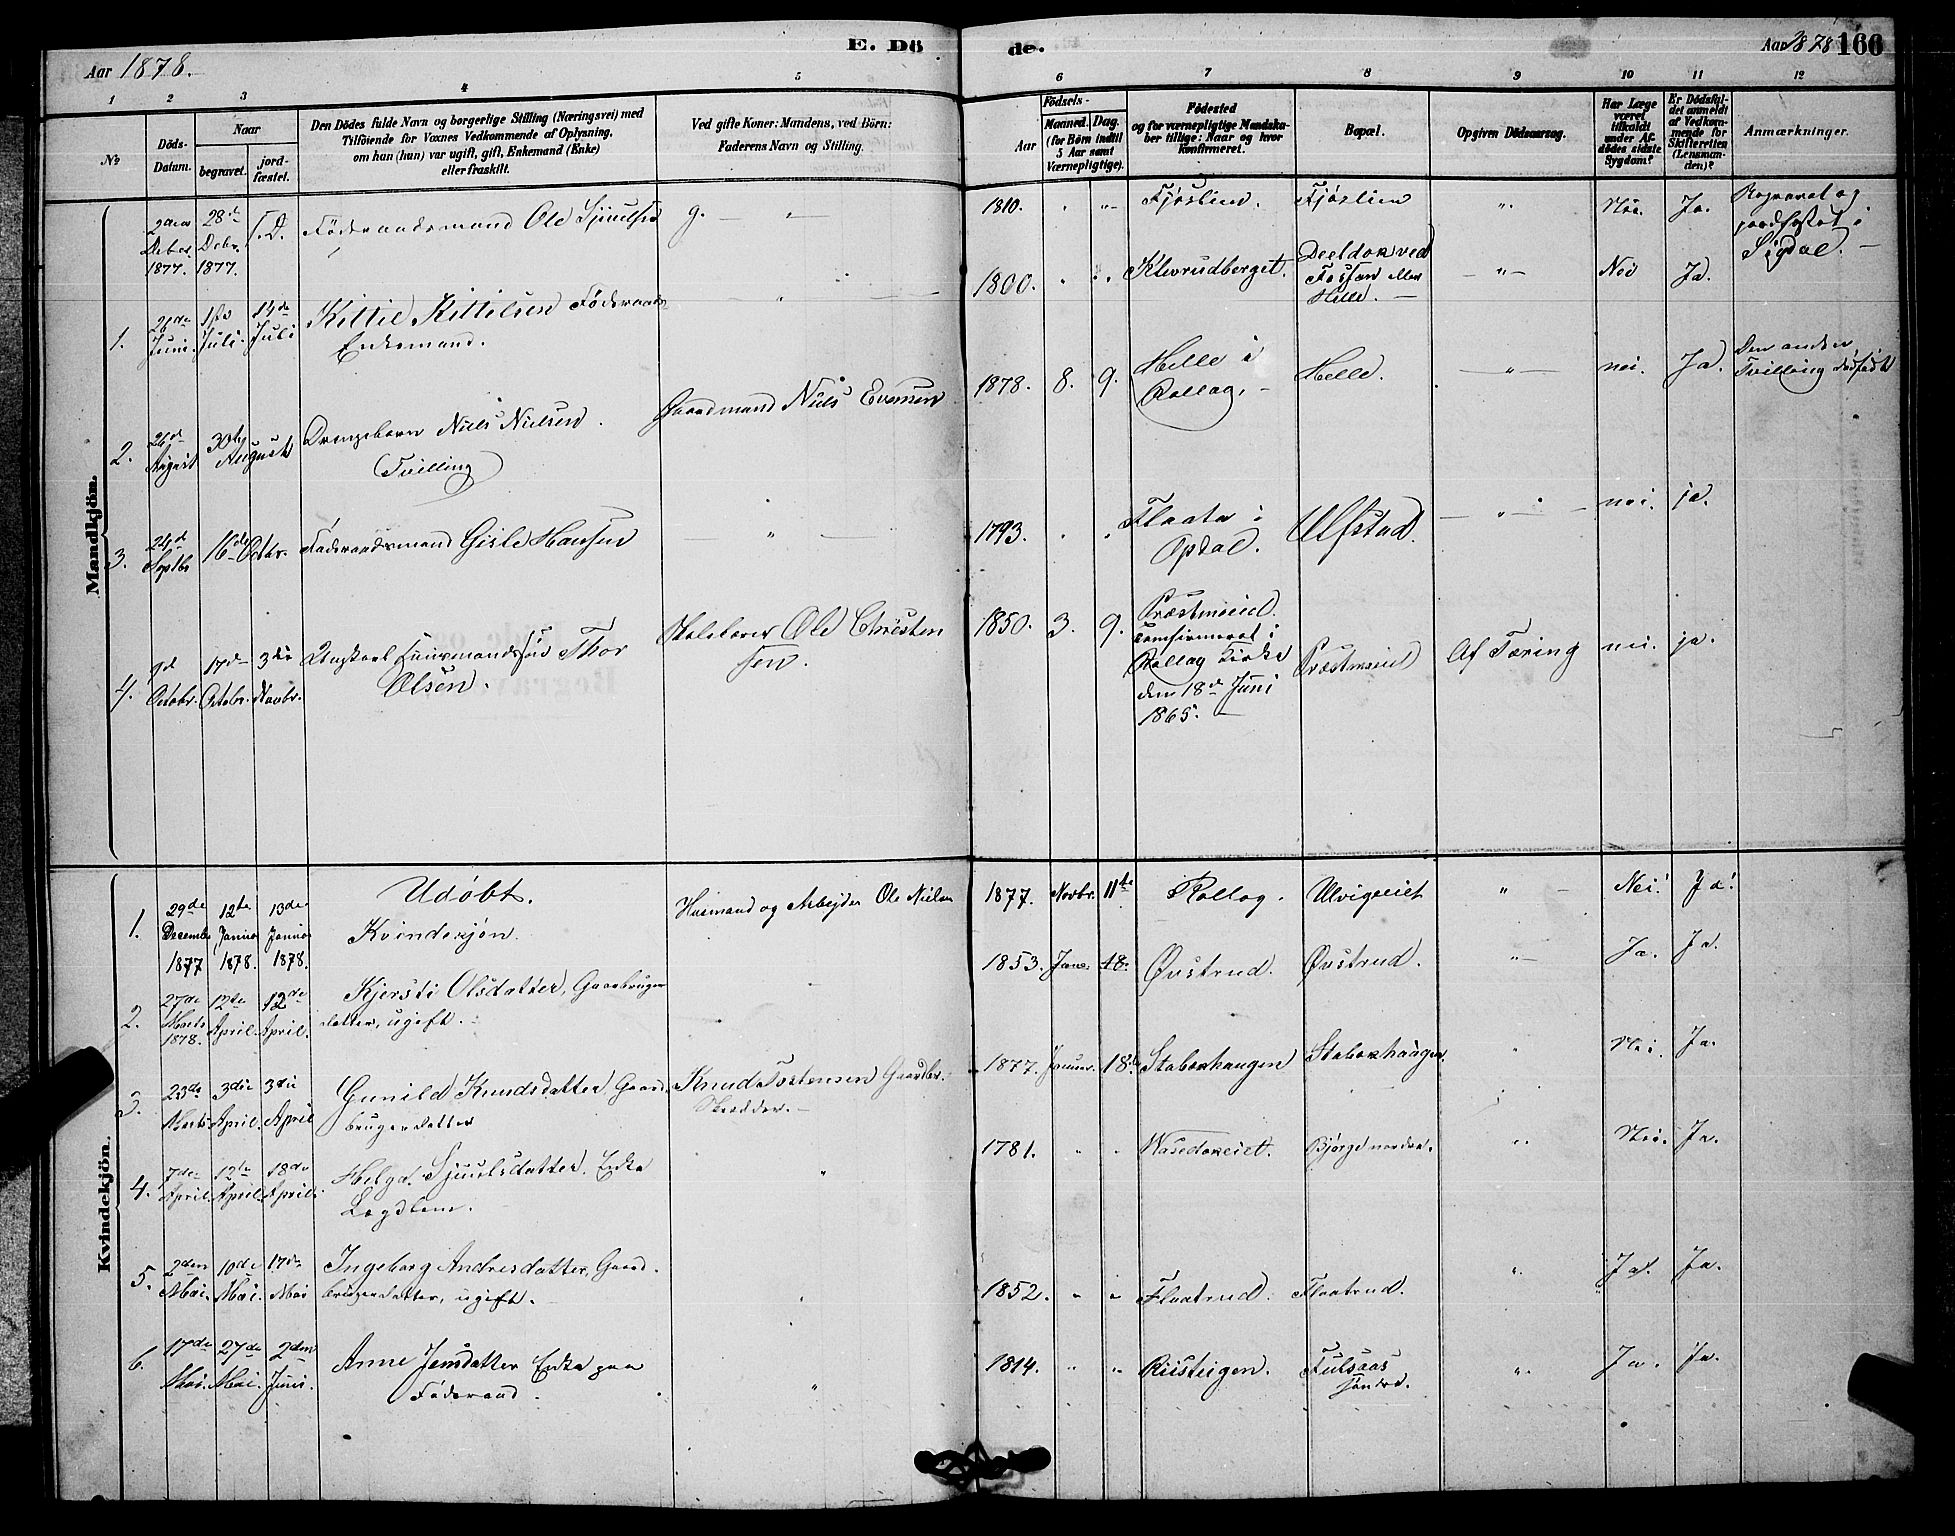 Aar 1878.
E. Dö
de.
Aar 1878
166
1 2 3 4 5 6 7 8 9 10 11 12
No
Döds-
Datum.
Naar
begravet.
jord-
fæstet.
Den Dödes fulde Navn og borgerlige Stilling (Næringsvei) med
Tilföiende for Voxnes Vedkommende af Oplysning,
om han (hun) var ugift, gift, Enkemand (Enke)
eller fraskilt.
Ved gifte Koner: Mandens, ved Börn:
Faderens Navn og Stilling.
Födsels-
Aar
Maaned. Dag.
(for Börn indtil
5 Aar samt
Værnepligtige).
Födested
og for værnepligtige Mandska-
ber tillige: Naar og hvor
konfirmeret.
Bopæl.
Opgiven Dödsaarsag.
Har Læge
været
tilkaldt
under Af-
dödes sidste
Sygdom?
Er Dödsfal-
det anmeldt
af Vedkom-
mende for
Skifteretten
(Lensman-
den)?
Anmærkninger.
Mandkjön.
2den Decbr 1877. 28de Decbr. 1877. S.D. Föderaadsmand Ole Sjulsen g. — " — 1810. " " Fjøslien. Fjøslien " Nei. Ja. Begravet og
jordfæstet i
Sigdal. —
1. 26de Juni. 1ste Juli. 14de Juli Kittil Kittilsen Föderaads
Enkemand. — " — 1800. " " Klevrudberget. Deeldokved
Fossan eller
Helle. — — " — Nei Ja.
2. 26de August 30te August Drengebarn Niels Nielsen.
(Tvilling) Gaardmand Niels Evensen 1878. 8. 9. Helle i
Rollag. — Helle. — " — nei. Ja. Den anden
Tvilling dødfødt
3. 24de Septbr 16de Octbr. Föderaadsmand Gisle Hansen — " — 1793. " " Flaata i
Opdal. Ulfstad. — " — nei. ja.
4. 9de Octobr. 17de Octobr. 3die Novbr. Ungkarl Huusmandssøn Thor
Olsen. Skolelærer Ole Christen
sen. 1850. 3. 9. Præstmoeiet.
Confirmeret i
Rollag Kirke
den 18de Juni
1865. — Præstmoeiet Af Tæring nei. ja.
Kvindekjön.
1. 29de December 1877 12te Januar 1878. 13de Januar 1878. Udøbt.
Kvindekjøn. Husmand og Arbejder Ole Nielsen 1877. Novbr. 11te Rollag. Ulvigeeiet " Nei. Ja.
2. 27de Marts 1878. 12te April. 12de April. Kjersti Olsdatter, Gaardbruger
datter, ugift. — " 1853. Janu. 18. Øvstrud. Øvstrud. " Ja. Ja.
3. 23de Marts. 3die April. 3die April Gunild Knudsdatter Gaard-
brugerdatter Knud Torstensen Gaardbr.
Skrædder. — 1877. Januar. 18. Stabækhaugen Stabækhaugen. " Nei. Ja.
4. 7de April. 12te April. 18de April. Helga Sjuulsdatter. Enke
Lægdlem. " 1781. " " Bjørge nordre. " Nei. Ja.
5. 2den Mai. 10de Mai. 17de Mai Ingeborg Andresdatter, Gaard-
brugerdatter, ugift. — " 1852. " " Flaatrud. Flaatrud. " Ja. Ja.
6. 17de Mai. 27de Mai. 2den Juni. Anne Jensdatter Enke paa
Föderaad. " 1814. " " Riisteigen. Fulsaas
søndre. " Ja. Ja.